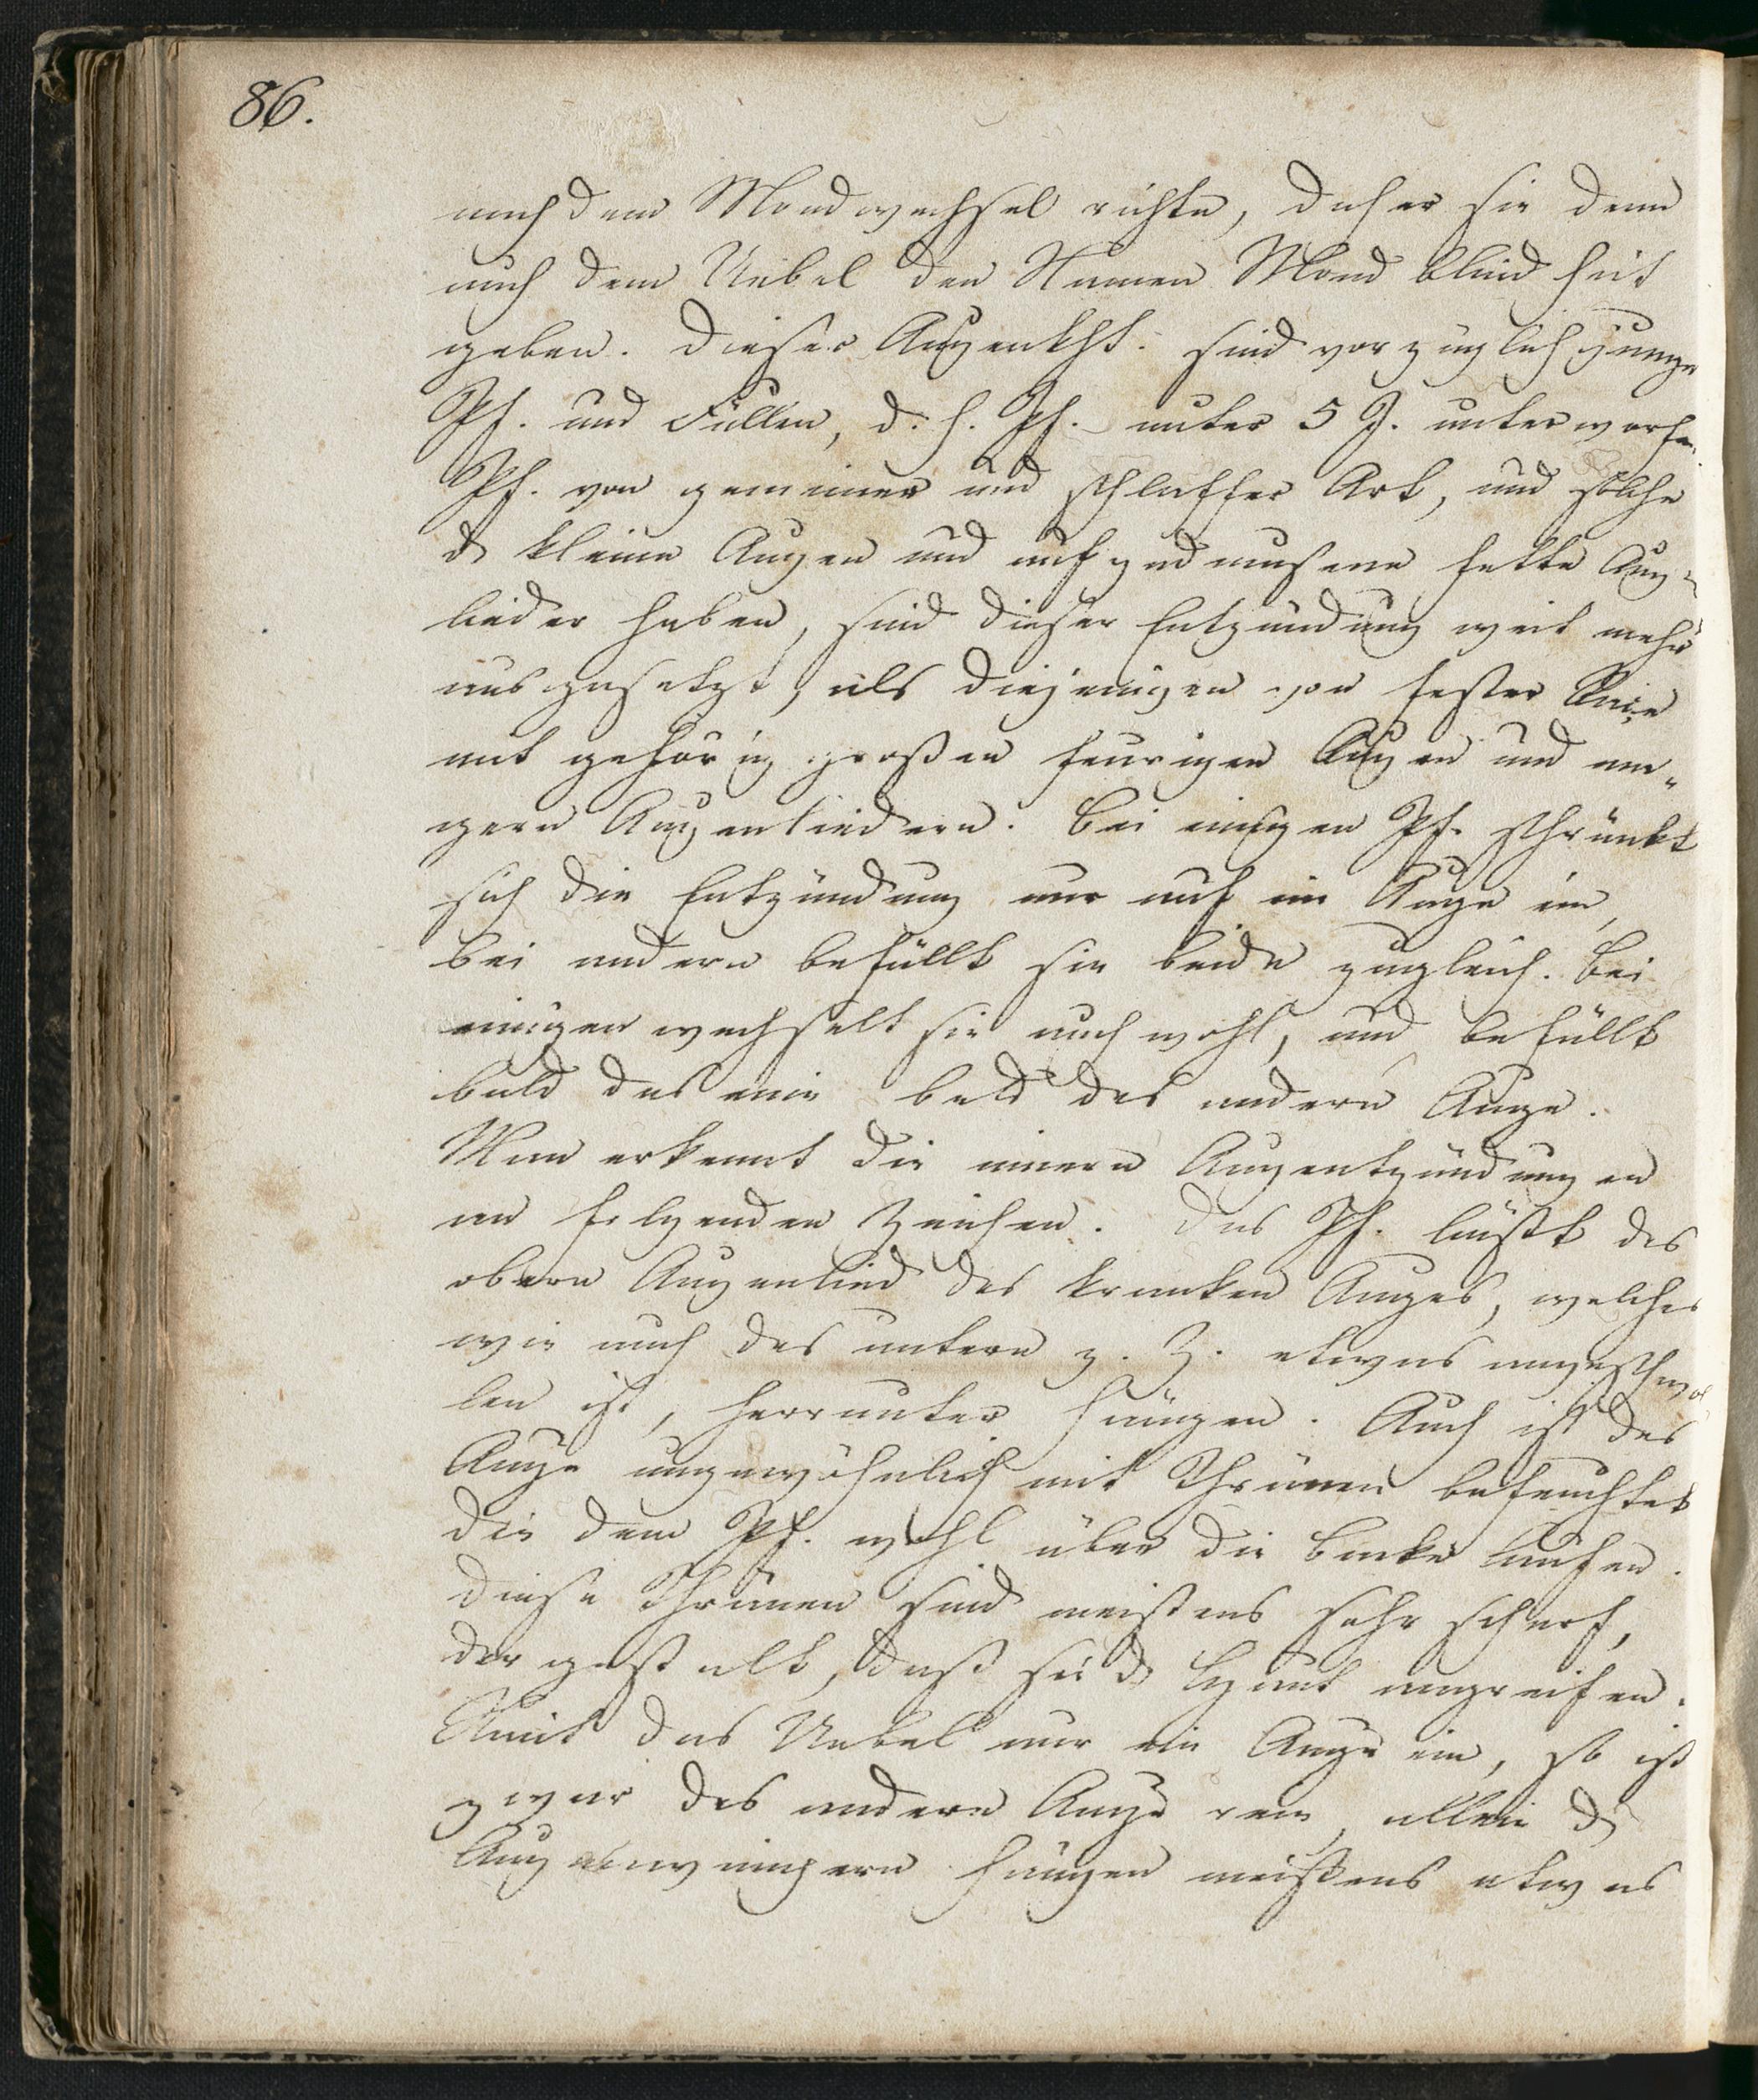 86.
nach dem Mondwechsel richte, daher sie denn
auch dem Uebel den Namen Mondblindheit
geben. Dieser Augenkht. sind vorzüglich junge
Pf. und Füllen, d. h. Pf. unter 5 J. unterworfen.
Pf. von gemeiner und schlaffer Art, und solche
d kleine Augen und aufgedunsene fette Aug=
lieder haben, sind dieser Entzündung weit mehr
ausgesetzt, als diejenigen von fester Race
mit gehörig großen feurigen Augen und ma=
gern Augenliedern. Bei einigen Pf. schränkt
sich die Entzündung nur auf ein Auge ein,
bei andern befällt sie beide zugleich. Bei
einigen wechselt sie auch wohl, und befällt
bald das eine bald das andere Auge.
Man erkennt die innern Augentzündungen
an folgenden Zeichen. Das Pf. läßt das
obere Augenlied des kranken Auges, welches
wie auch das untere z. Z. etwas angeschwol
len ist, herrunter hängen. Auch ist das
Auge ungewöhnlich mit Thränen befeuchtet
die dem Pf. wohl über die Backe laufen.
Diese Thränen sind meistens sehr scharf,
dergestalt, daß sie d Haut angreifen.
Nimt das Uebel nur ein Auge ein, so ist
zwar das andere Auge rein, allein d
Augenwimpern hängen meistens etwas